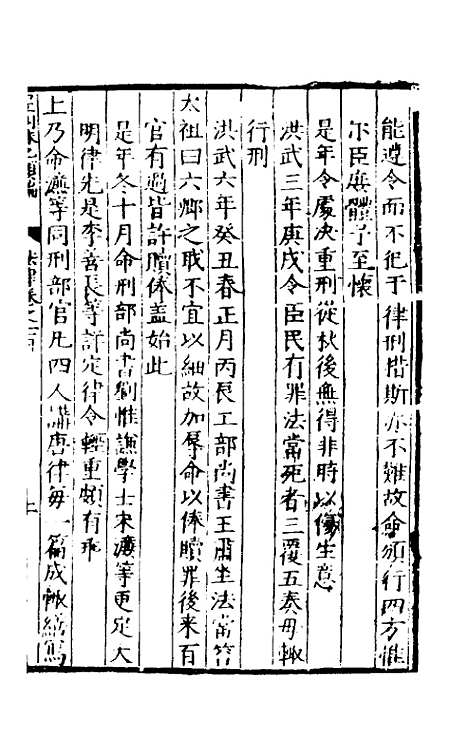 能遵令而不犯于律刑措斯亦不難故命頒行四方惟
尓臣庶體予至懷
是年令處决重刑從秋後無得非時以傷生意
洪武三年庚戌令臣民有罪法當死者三覆五奏毋輙
行刑
洪武六年癸丑春正月丙辰工部尚書王肅坐法當笞
太祖曰六卿之職不宜以細故加辱命以俸贖罪後来百
官有過皆許贖俸盖始此
是年冬十月命刑部尚書劉惟謙學士宋濂等更定大
明律先是李善長等詳定律令輕重頗有
上乃命濂等同刑部官凡四人講唐律每一篇成輙繕寫
法律卷之